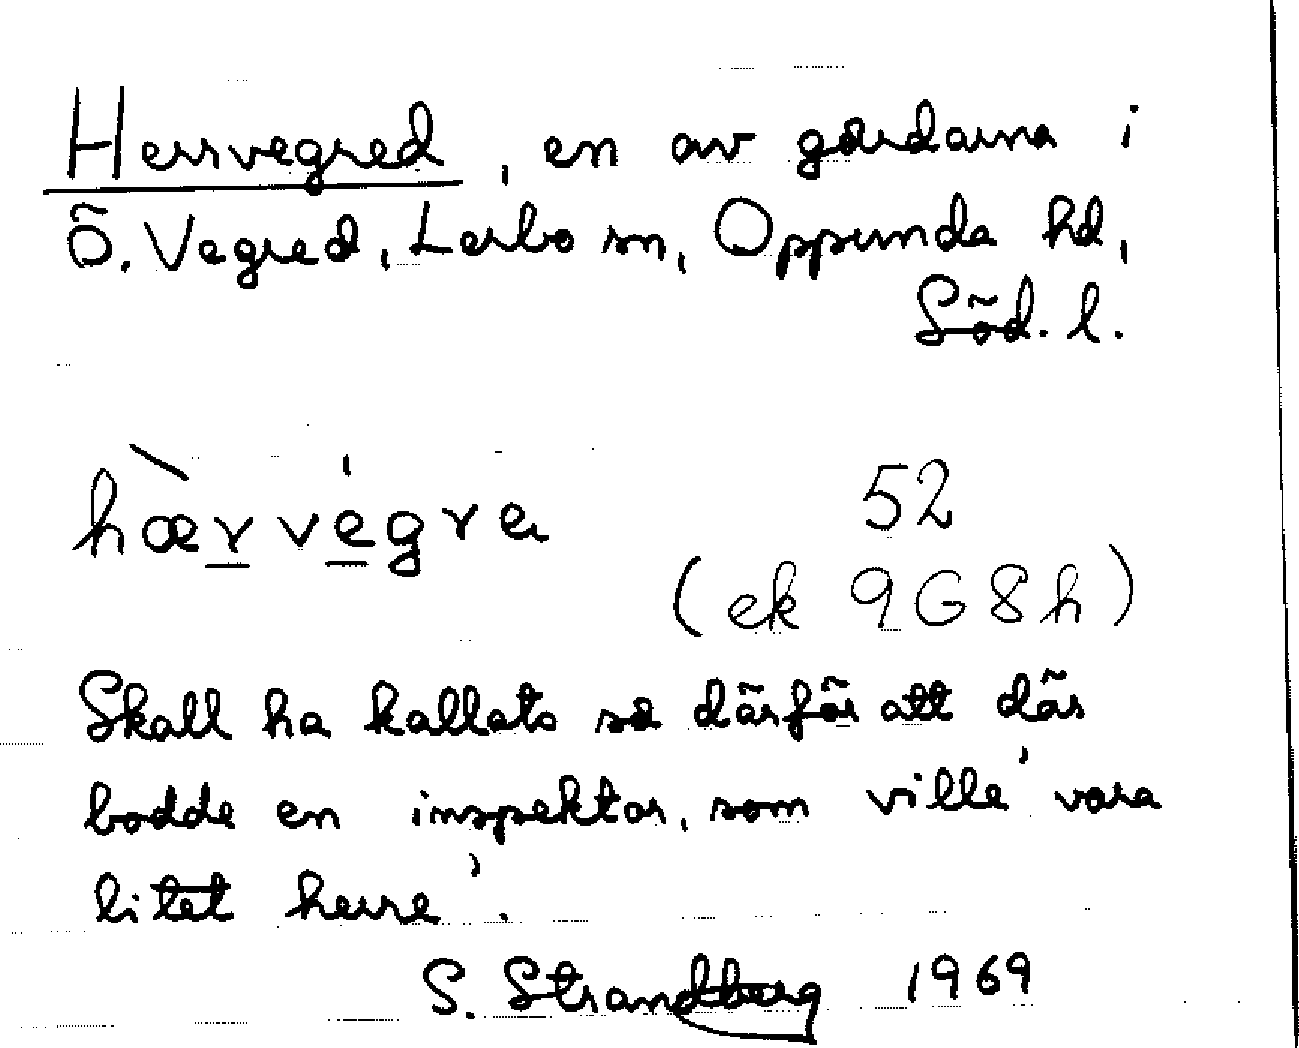 Herrvegred, en av gårdarna i
Ö. Vegred, Lerbo sn, Oppunda hd,
Söd. l.
hær̲ve̲gre
52
(ek 9G8h)
Skall ha kallats så därför att där
bodde en inspektor, som ville' vara
litet herre'.
S. Strandberg 1969